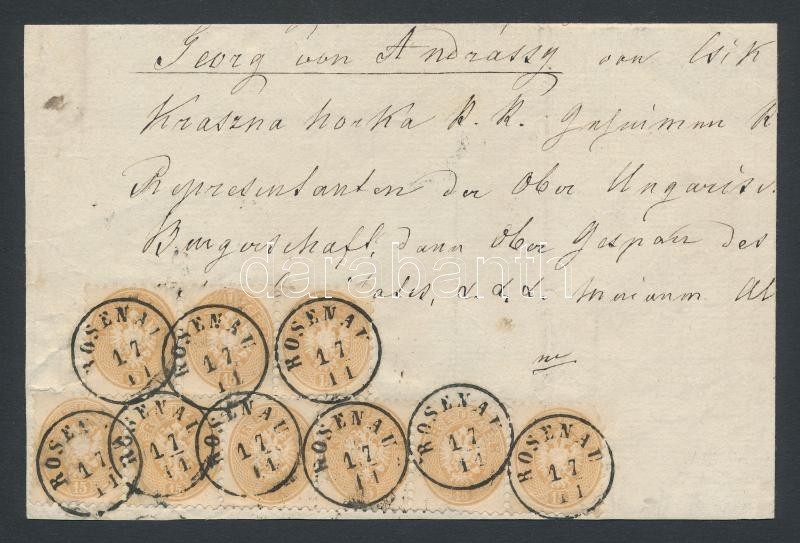 Georg von Andrássy von Csik
Kraszna horka K. K. Geheimen K
Representanten der Ober Ungarisc
Burgerschaft, dann Ober Gespan des
darabanth
ROSENAU
17
11
ROSENAU
17
11
ROSENAU
17
11
ROSENAU
17
11
ROSENAU
17
11
ROSENAU
17
11
ROSENAU
17
11
ROSENAU
17
11
ROSENAU
17
11